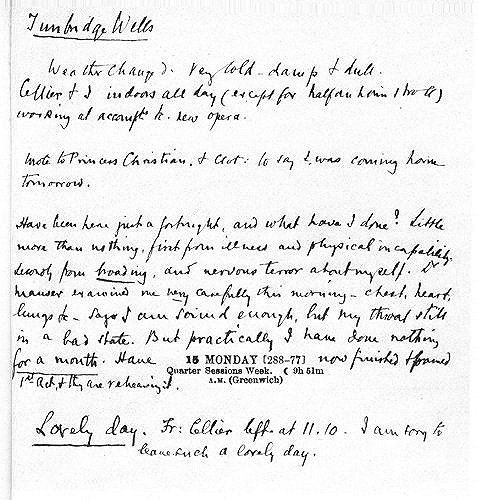 Tunbridge Wells
Weather changed. Very cold – damp & dull.
Cellier & I indoors all day (except for half an hour's stroll)
working at accompts &c. new opera.
Wrote to Princess Christian, & Clot: to say I was coming home
tomorrow.
Have been here just a fortnight, and what have I done? Little
more than nothing, first from illness and physical incapability,
secondly from brooding, and nervous terror about myself. Dr
Manser examined me very carefully this morning – chest, heart,
lungs &c – says I am sound enough, but my throat still
in a bad state. But practically I have done nothing
for a month. Have now finished & framed
15 MONDAY [288-77]
Quarter Sessions Week. ☾ 9h 51m
A.M. (Greenwich)
1st Act, & they are rehearsing it.
Lovely day. Fr: Cellier left at 11.10. I am sorry to
leave such a lovely day.